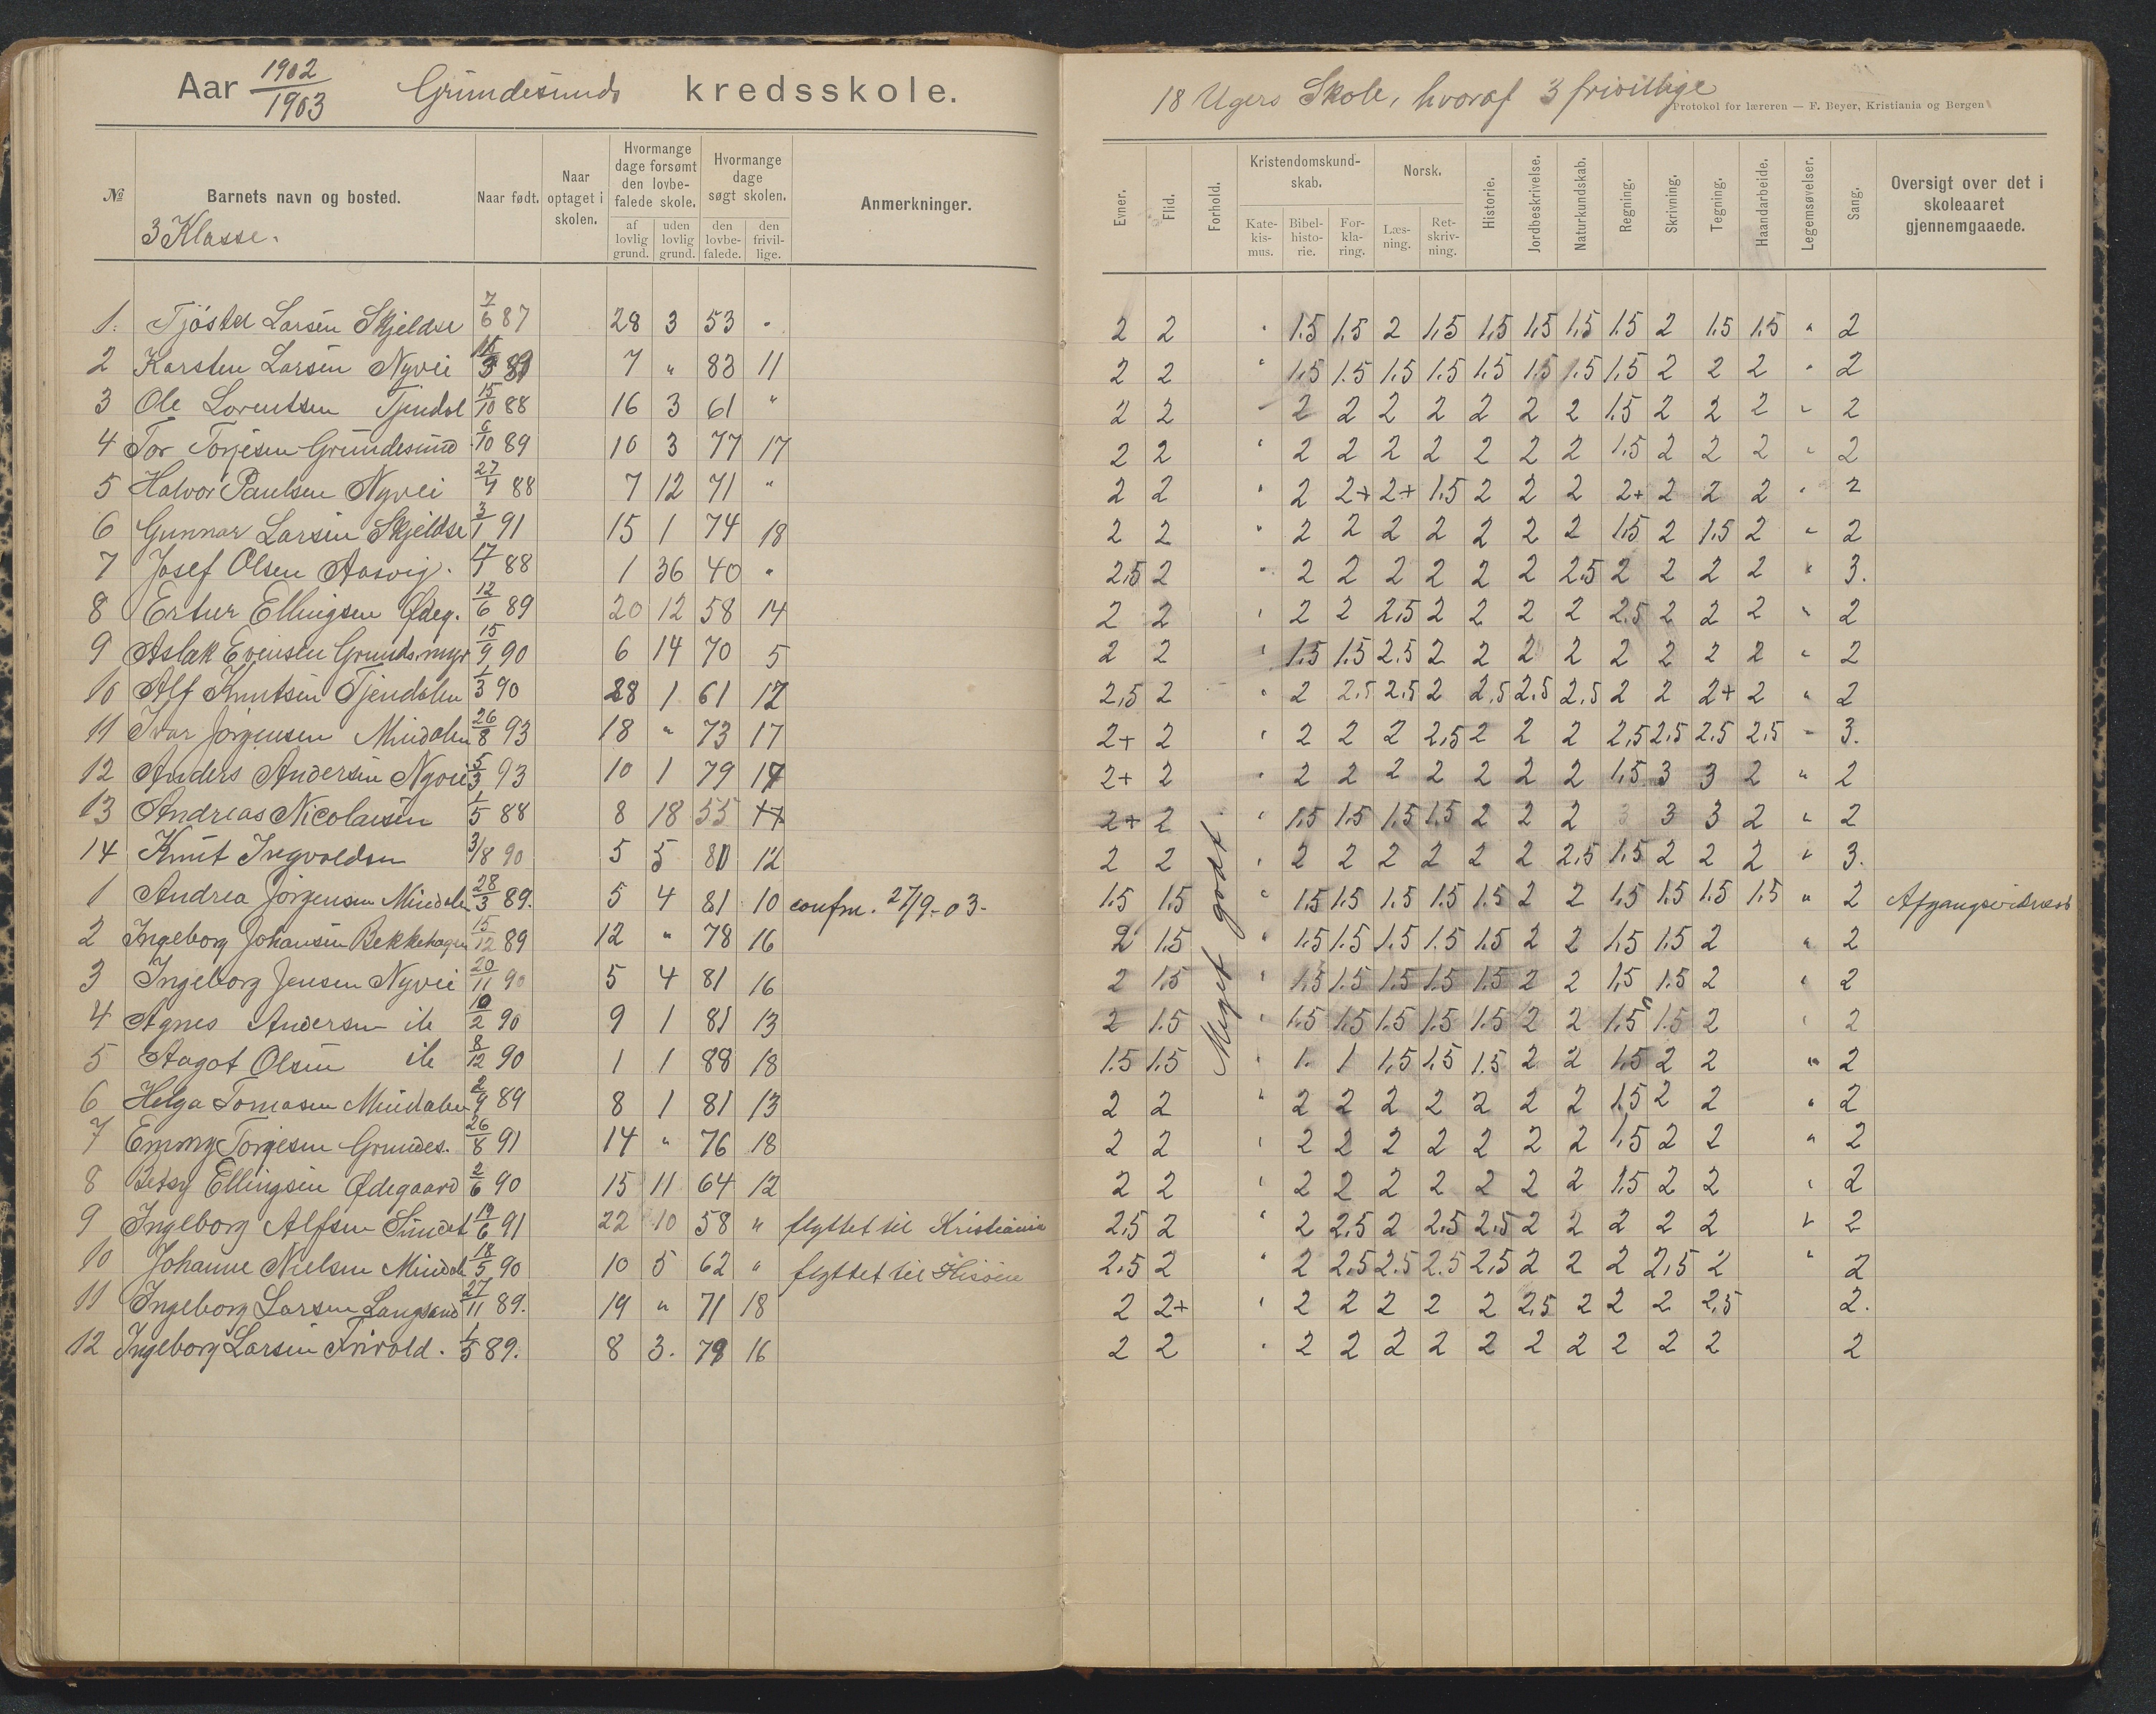 Aar 1902/1903 Grundesunds kredsskole.
№ Barnets navn og bosted. Naar født. Naar optaget i skolen. Hvormange dage forsømt den lovbefalede skole. af lovlig grund. uden lovlig grund. Hvormange dage søgt skolen. den lovbefalede. den frivillige. Anmerkninger.
3 Klasse.
1. Larsen Skjeldsø 7/6 87 28 3 53 "
2 Karsten Larsen Nyvei 7 " 83 11
3 Ole Lorentsen Tjendal 15/10 88 16 3 61 "
4 Tor Torjesen Grundesund 6/10 89 10 3 77 17
5 Halvor Paulsen Nyvei 88 7 12 71 "
6 Gunnar Larsen Skjeldsø 3/1 91 15 1 74 18
7 Josef Olsen Aasvig. 17/1 88 1 36 40 "
8 Ellingsen Ødeg. 12/6 89 20 12 58 14
9 Aslak Evensen Grundsmyr 15/9 90 6 14 70 5
10 Alf Knutsen Tjendalen 1/3 90 28 1 61 12
11 Ivar Jørgensen Mindalen 26/8 93 18 " 73 17
12 Anders Andersen Nyvei 5/3 93 10 1 79 17
13 Andreas Nicolaisen 1/5 88 8 18 55
14 Knut Ingvoldsen 3/8 90 5 5 12
1 Andrea Jørgensen Mindalen 28/3 89. 5 4 81 10 confm. 27/9-03-
2 Ingeborg Johansen Bekkehagen 15/12 89 12 " 78 16
3 Ingeborg Jensen Nyvei 20/11 90 5 4 81 16
4 Agnes Andersen ib 10/2 90 9 1 81 13
5 Aagot Olsen ib 8/12 90 1 1 88 18
6 Helga Tomasen Mindalen 2/9 89 8 1 81 13
7 Emmy Torjesen Grundes. 26/8 91 14 " 76 18
8 Betsy Ellingsen Ødegaard 2/6 90 15 11 64 12
9 Ingeborg Alfsen Sundet 19/6 91 22 10 58 " flyttet til Kristiania
10 Johanne Nielsen Mindal 18/5 90 10 5 62 " flyttet til Hisøen
11 Ingeborg Larsen Langsand 27/11 89. 19 " 71 18
12 Ingeborg Larsen 1/5 89. 8 3. 79 16
18 Ugers Skole, hvoraf 3 frivillige
Protokol for læreren — F. Beyer, Kristiania og Bergen
Evner. Flid. Forhold. Kristendomskundskab. Katekismus. Bibelhistorie. Forklaring. Norsk. Læsning. Retskrivning. Historie. Jordbeskrivelse. Naturkundskab. Regning. Skrivning. Tegning. Haandarbeide. Legemsøvelser. Sang. Oversigt over det i skoleaaret gjennemgaaede.
2 2 " 1.5 1.5 2 1.5 1.5 1.5 1.5 1.5 2 1.5 1.5 " 2
2 2 " 1.5 1.5 1.5 1.5 1.5 1.5 1.5 1.5 2 2 2 " 2
2 2 " 2 2 2 2 2 2 2 1.5 2 2 2 " 2
2 2 " 2 2 2 2 2 2 2 1.5 2 2 2 " 2
2 2 " 2 2+ 2+ 1.5 2 2 2 2+ 2 2 2 " 2
2 2 " 2 2 2 2 2 2 2 1.5 2 1.5 2 " 2
2,5 2 " 2 2 2 2 2 2 2.5 2 2 2 2 " 3.
2 2 " 2 2 2,5 2 2 2 2 2.5 2 2 2 " 2
2 2 " 1.5 1.5 2.5 2 2 2 2 2 2 2 2 " 2
2,5 2 " 2 2,5 2,5 2 2,5 2,5 2,5 2 2 2+ 2 " 2
2+ 2 " 2 2 2 2,5 2 2 2 2,5 2,5 2,5 2,5 " 3.
2+ 2 " 2 2 2 2 2 2 2 1,5 3 3 2 " 2
2+ 2 " 1.5 1.5 1.5 1.5 2 2 2 3 3 3 2 " 2
2 2 " 2 2 2 2 2 2 2,5 1,5 2 2 2 " 3.
1.5 1.5 " 1.5 1.5 1.5 1.5 1.5 2 2 1.5 1.5 1.5 1.5 " 2 Afgangsvidnesb
Meget godt.
2 1.5 " 1.5 1.5 1.5 1.5 1.5 2 2 1.5 1.5 2 " 2
2 1.5 " 1.5 1.5 1.5 1.5 1.5 2 2 1.5 1.5 2 " 2
2 1.5 " 1.5 1.5 1.5 1.5 1.5 2 2 1.5 1.5 2 " 2
1.5 1.5 " 1. 1 1,5 1.5 1.5 2 2 1.5 2 2 " 2
2 2 " 2 2 2 2 2 2 2 1.5 2 2 " 2
2 2 " 2 2 2 2 2 2 2 1,5 2 2 " 2
2 2 " 2 2 2 2 2 2 2 1.5 2 2 " 2
2,5 2 " 2 2,5 2 2,5 2,5 2 2 2 2 2 " 2
2,5 2 " 2 2,5 2,5 2,5 2,5 2 2 2 2,5 2 " 2
2 2+ " 2 2 2 2 2 2,5 2 2 2 2,5 2.
2 2 " 2 2 2 2 2 2 2 2 2 2 2